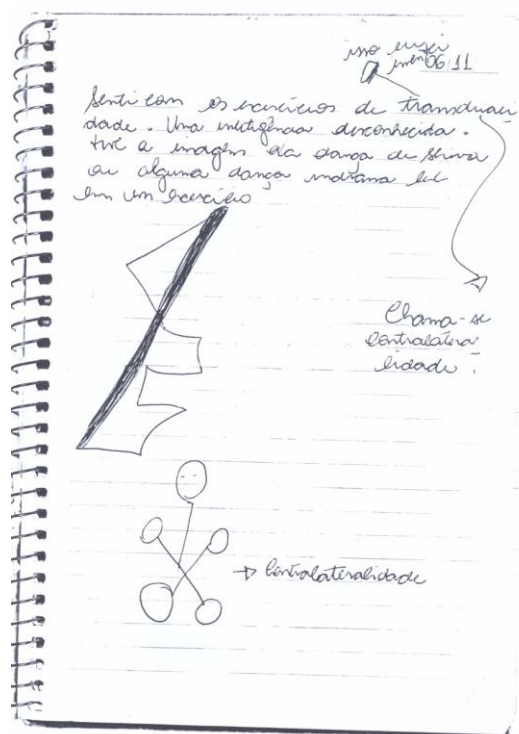 isso
06/11
Senti com os exercícios de transduaci
dade. Uma inteligência desconhecida.
tive a imagem da dança de Shiva
ou alguma dança indiana
em um exercício
Chama-se
Contralatera
lidade!
Contralateralidade